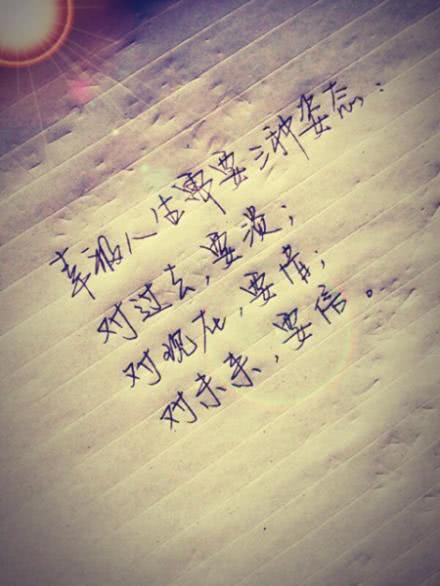 幸福人生需要三种姿态：
对过去，要淡；
对现在，要惜；
对未来，要信。